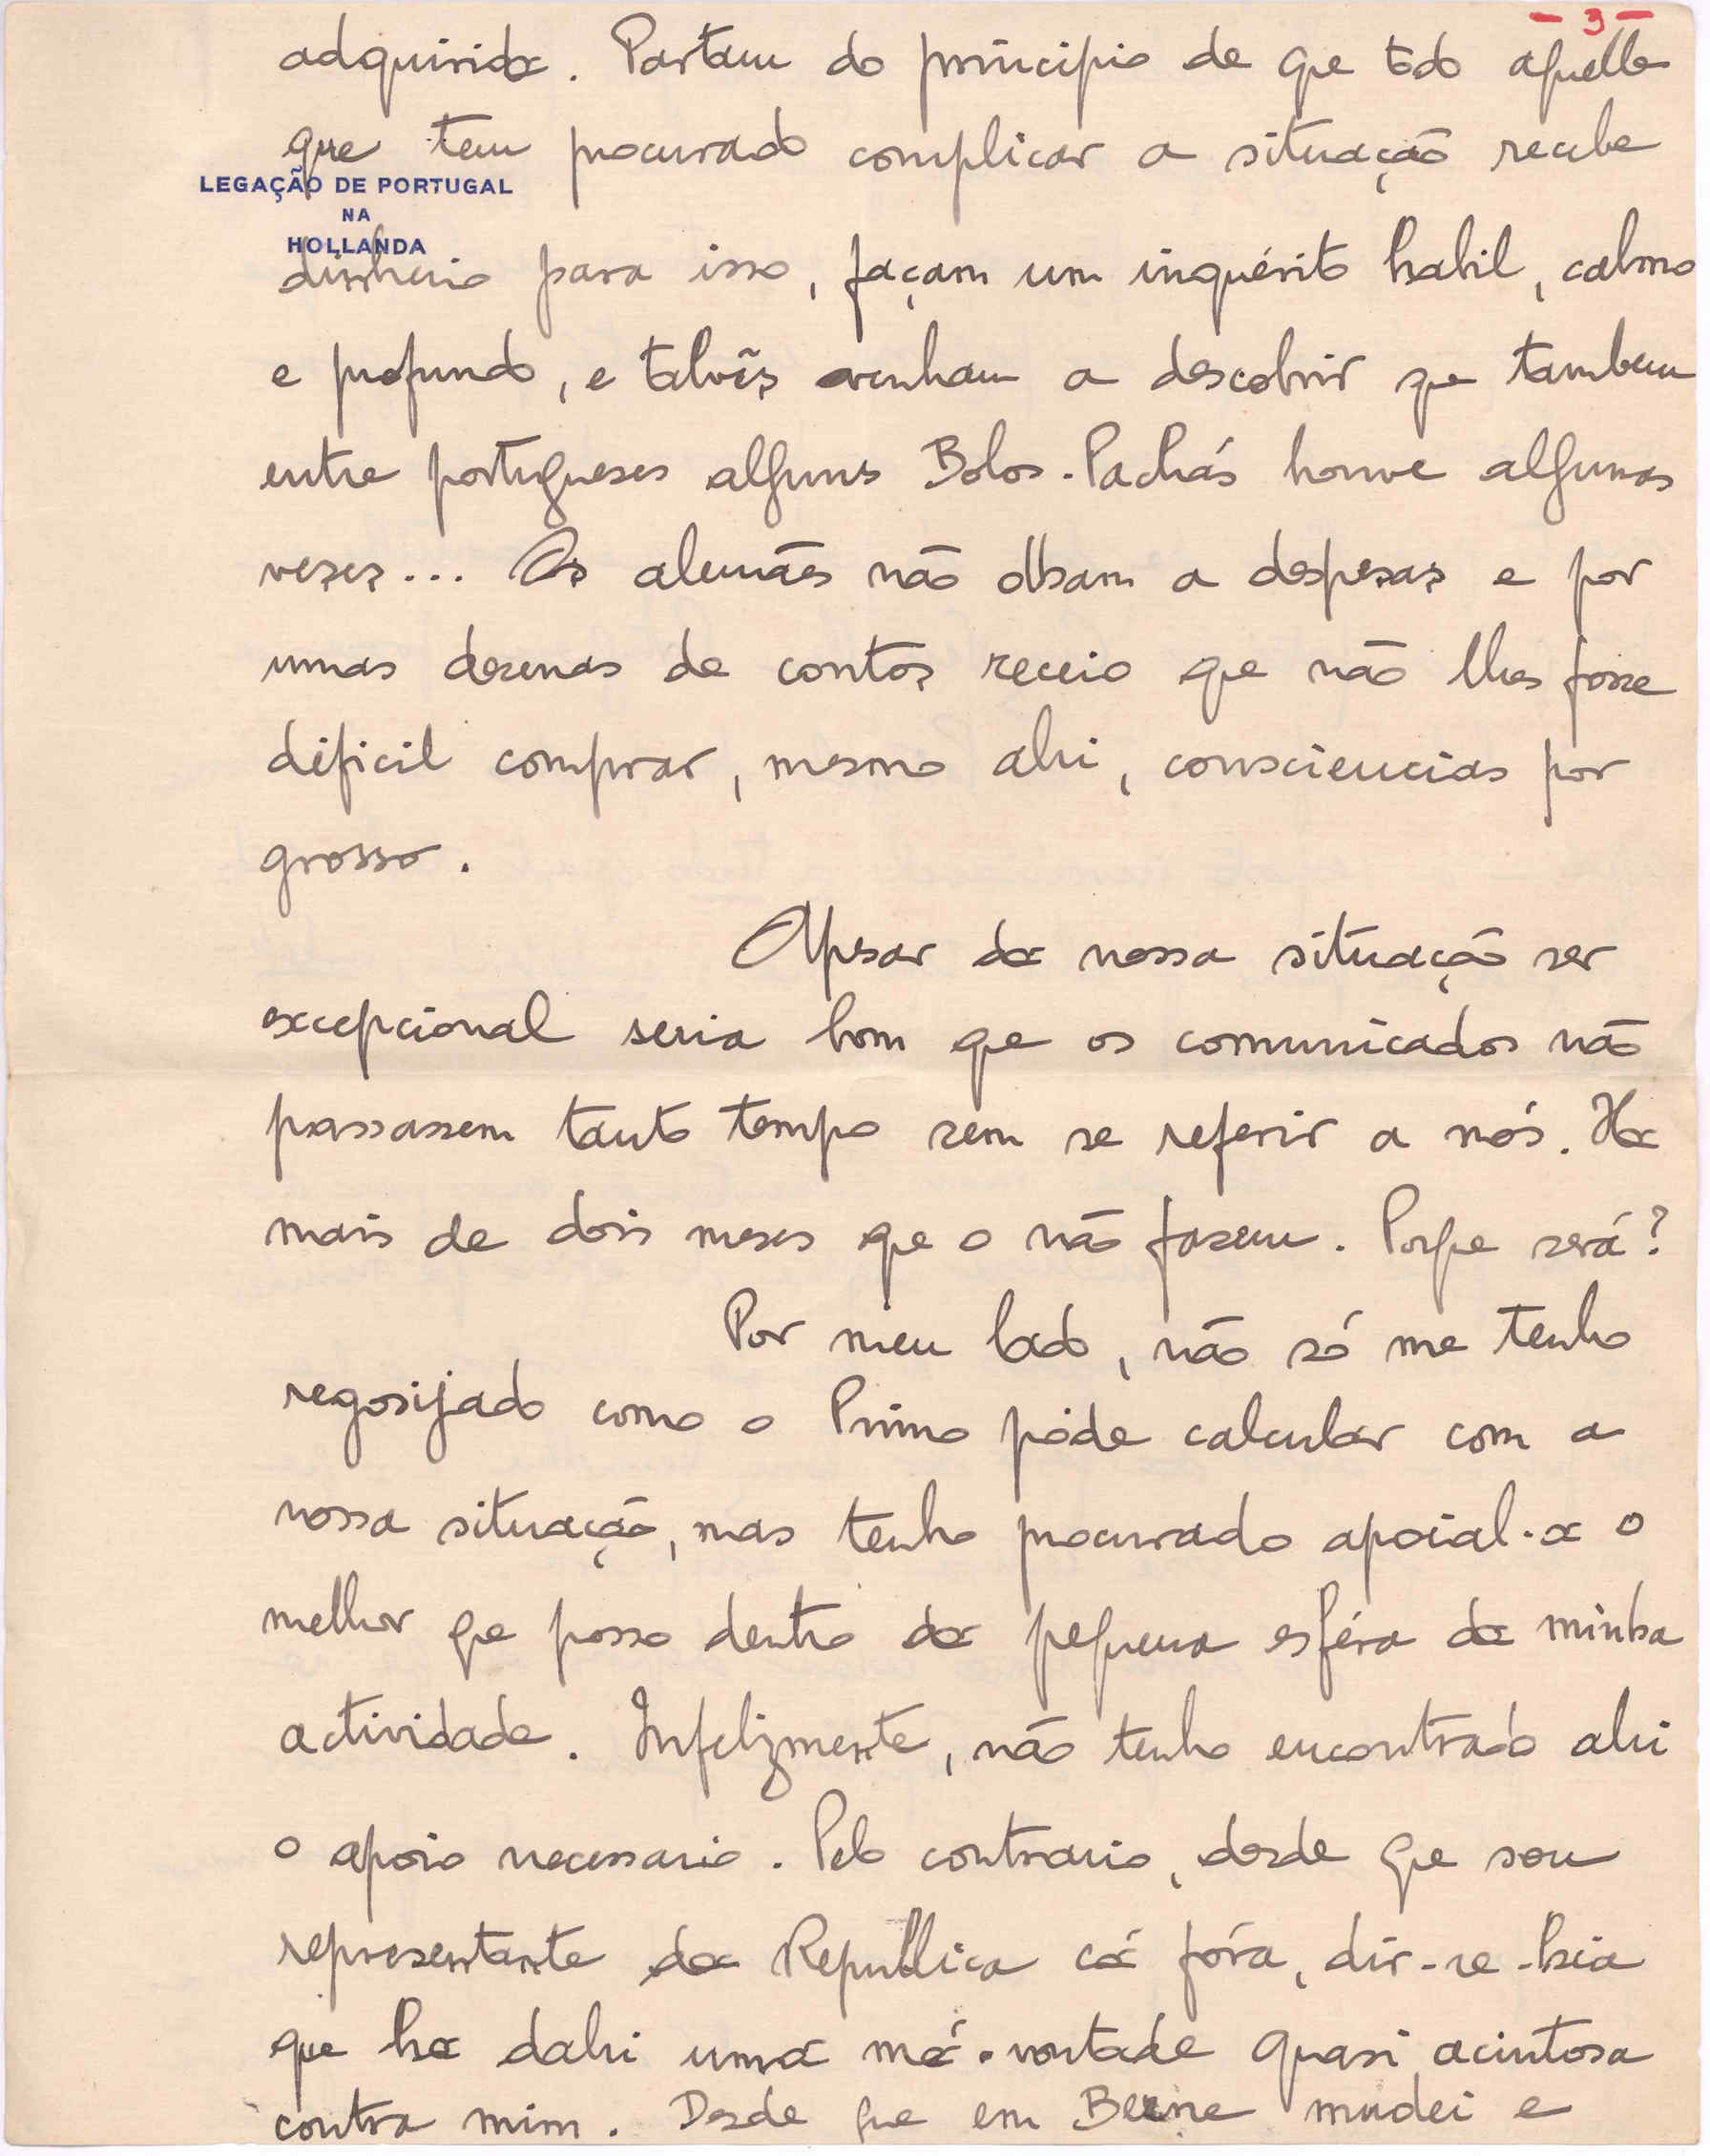 - 3 -
adquirida. Partam do principio de que todo aquelle
que tem procurado complicar a situação recebe
LEGAÇÃO DE PORTUGAL
NA
HOLLANDA
dinheiro para isso, façam um inquérito habil, calmo
e profundo, e talvês venham a descobrir que tambem
entre portugueses alguns Bolos-Pachás houve algumas
vezes... Os alemães não olham a despezas e por
umas dezenas de contos receio que não lhes fosse
dificil comprar, mesmo ahi, consciencias por
grosso.
Apesar da nossa situação ser
excepcional seria bom que os comunicados não
passassem tanto tempo sem se referir a nós. Ha
mais de dois meses que o não fazem. Porque será?
Por meu lado, não só me tenho
regosijado como o Primo póde calcular com a
nossa situação, mas tenho procurado apoial-a o
melhor que posso dentro da pequena esféra da minha
actividade. Infelizmente, não tenho encontrado ahi
o apoio necessario. Pelo contrario, desde que sou
representante da Republica cá fóra, dir-se-hia
que ha dahi uma má-vontade quasi acintosa
contra mim. Desde que em Berne mudei e